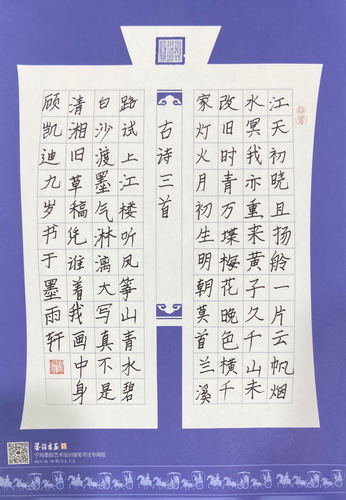 江天初晓且扬舲一片云帆烟
水冥我亦重来黄子久千山未
改旧时青万堞梅花晚色横千
家灯火月初生明朝莫首兰溪
古诗三首
路试上江楼听风筝山青水碧
白沙渡墨气淋漓大写真不是
清湘旧草稿凭谁着我画中身
顾凯迪九岁书于墨雨轩